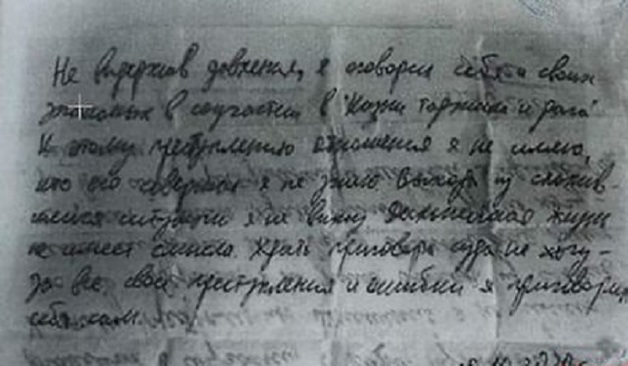 Не выдержав давления, я оговорил себя и своих
знакомых в соучастии в "Казни таджика и дага"
К этому преступлению отношения я не имею,
кто его совершил я не знаю Выхода из сложив-
шейся ситуации я не вижу Дальнейшая жизнь
не имеет смысла. Ждать приговора суда не хочу-
за все свои преступления и ошибки я приговорил
себя сам.